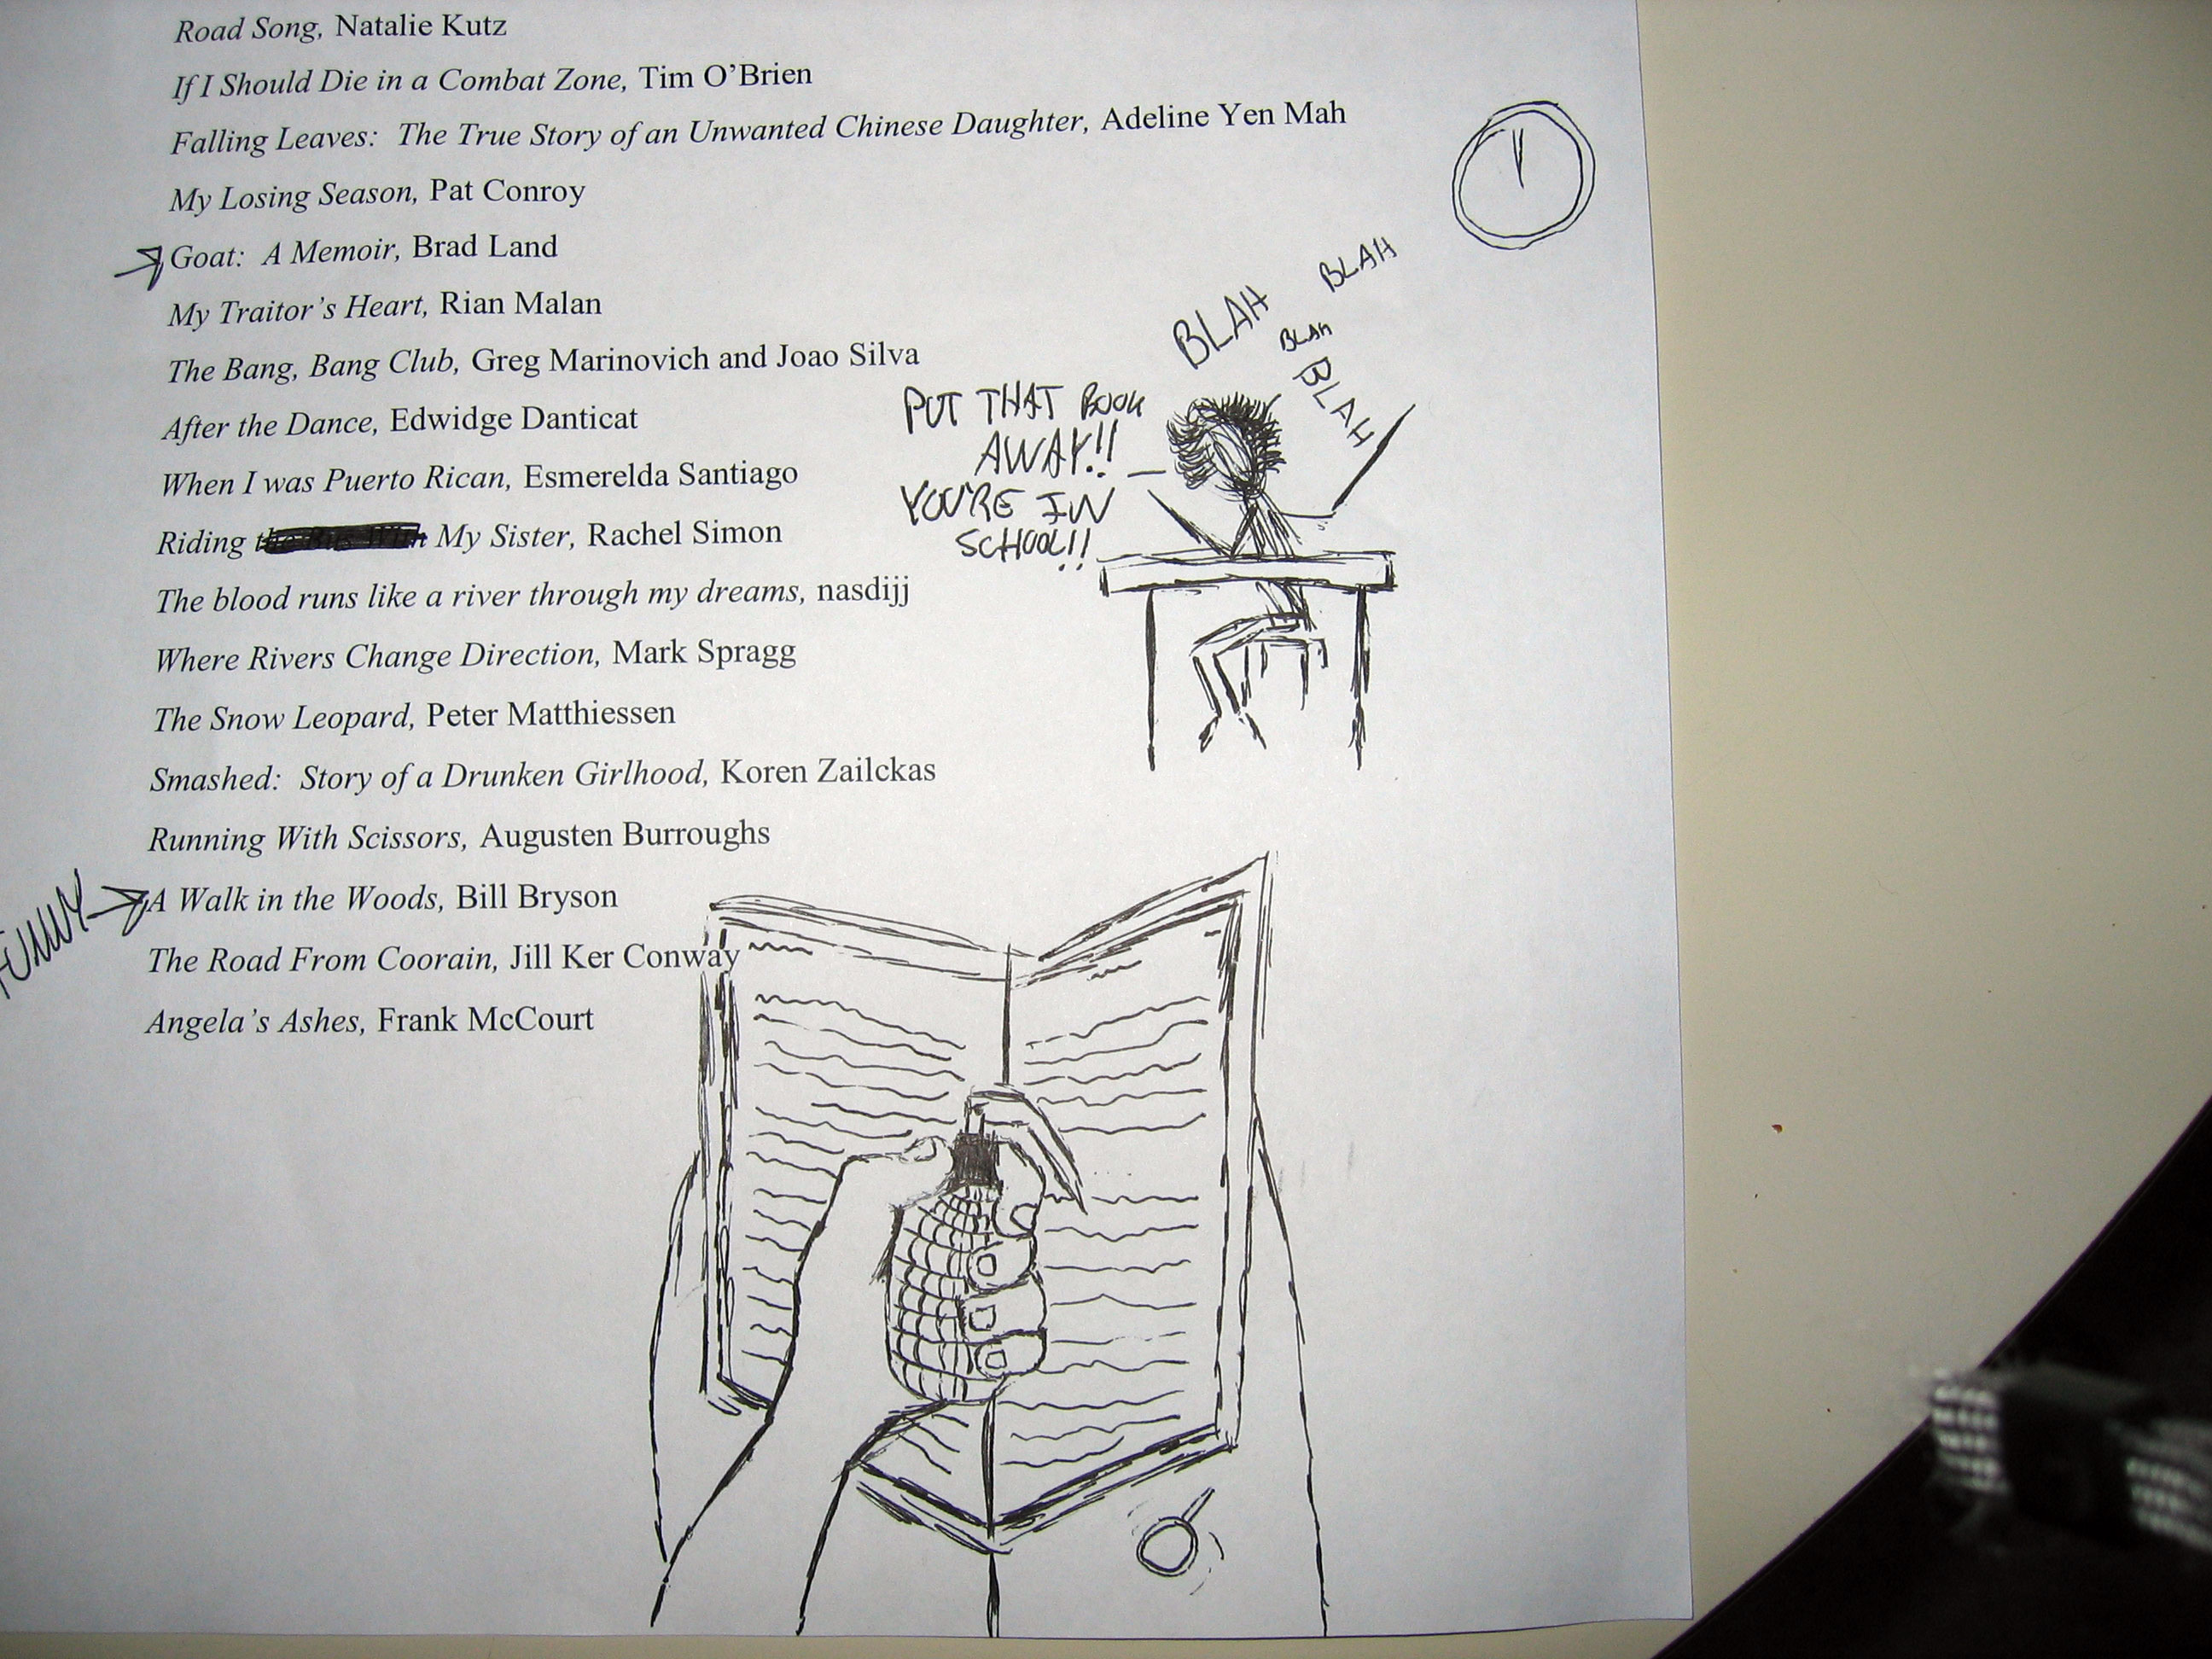 Road Song, Natalie Kutz
If I Should Die in a Combat Zone, Tim O'Brien
Falling Leaves: The True Story of an Unwanted Chinese Daughter, Adeline Yen Mah
My Losing Season, Pat Conroy
Goat: A Memoir, Brad Land
My Traitor's Heart, Rian Malan
The Bang, Bang Club, Greg Marinovich and Joao Silva
After the Dance, Edwidge Danticat
When I was Puerto Rican, Esmerelda Santiago
Riding the Bus With My Sister, Rachel Simon
The blood runs like a river through my dreams, nasdijj
Where Rivers Change Direction, Mark Spragg
The Snow Leopard, Peter Matthiessen
Smashed: Story of a Drunken Girlhood, Koren Zailckas
Running With Scissors, Augusten Burroughs
FUNNY
A Walk in the Woods, Bill Bryson
The Road From Coorain, Jill Ker Conway
Angela's Ashes, Frank McCourt
BLAH
BLAH
BLAH
BLAH
PUT THAT BOOK
AWAY!!
YOU'RE IN
SCHOOL!!